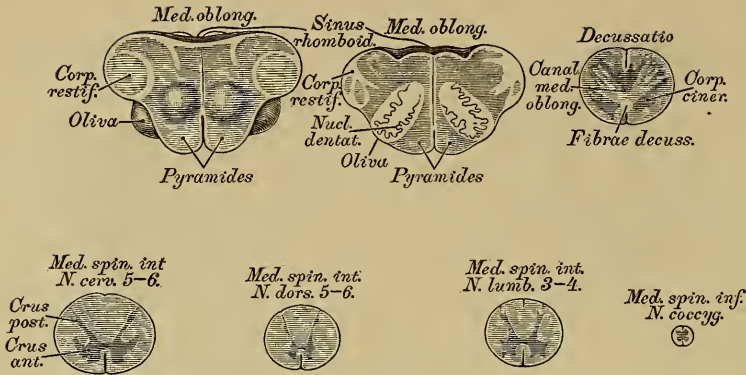 Med. oblong.
Sinus
rhomboid.
Med. oblong.
Decussatio
Corp.
restif.
Oliva
Pyramides
Corp.
restif.
Nucl.
dentat.
Oliva
Pyramides
Canal.
med.
oblong.
Corp.
ciner.
Fibrae decuss.
Med. spin. int
N. cerv. 5–6.
Crus
post.
Crus
ant.
Med. spin. int.
N. dors. 5–6.
Med. spin. int.
N. lumb. 3–4.
Med. spin. inf.
N. coccyg.